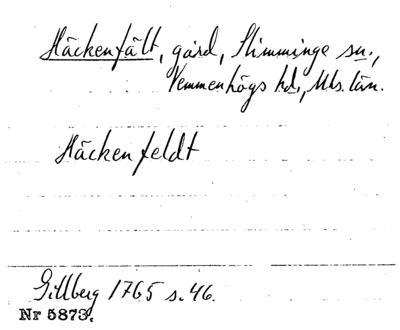 Häckenfält, gård, Slimminge sn.,
Vemmenhögs hd., Mls. län.
Häckenfeldt
Gillberg 1765 s. 46.
Nr 5873.